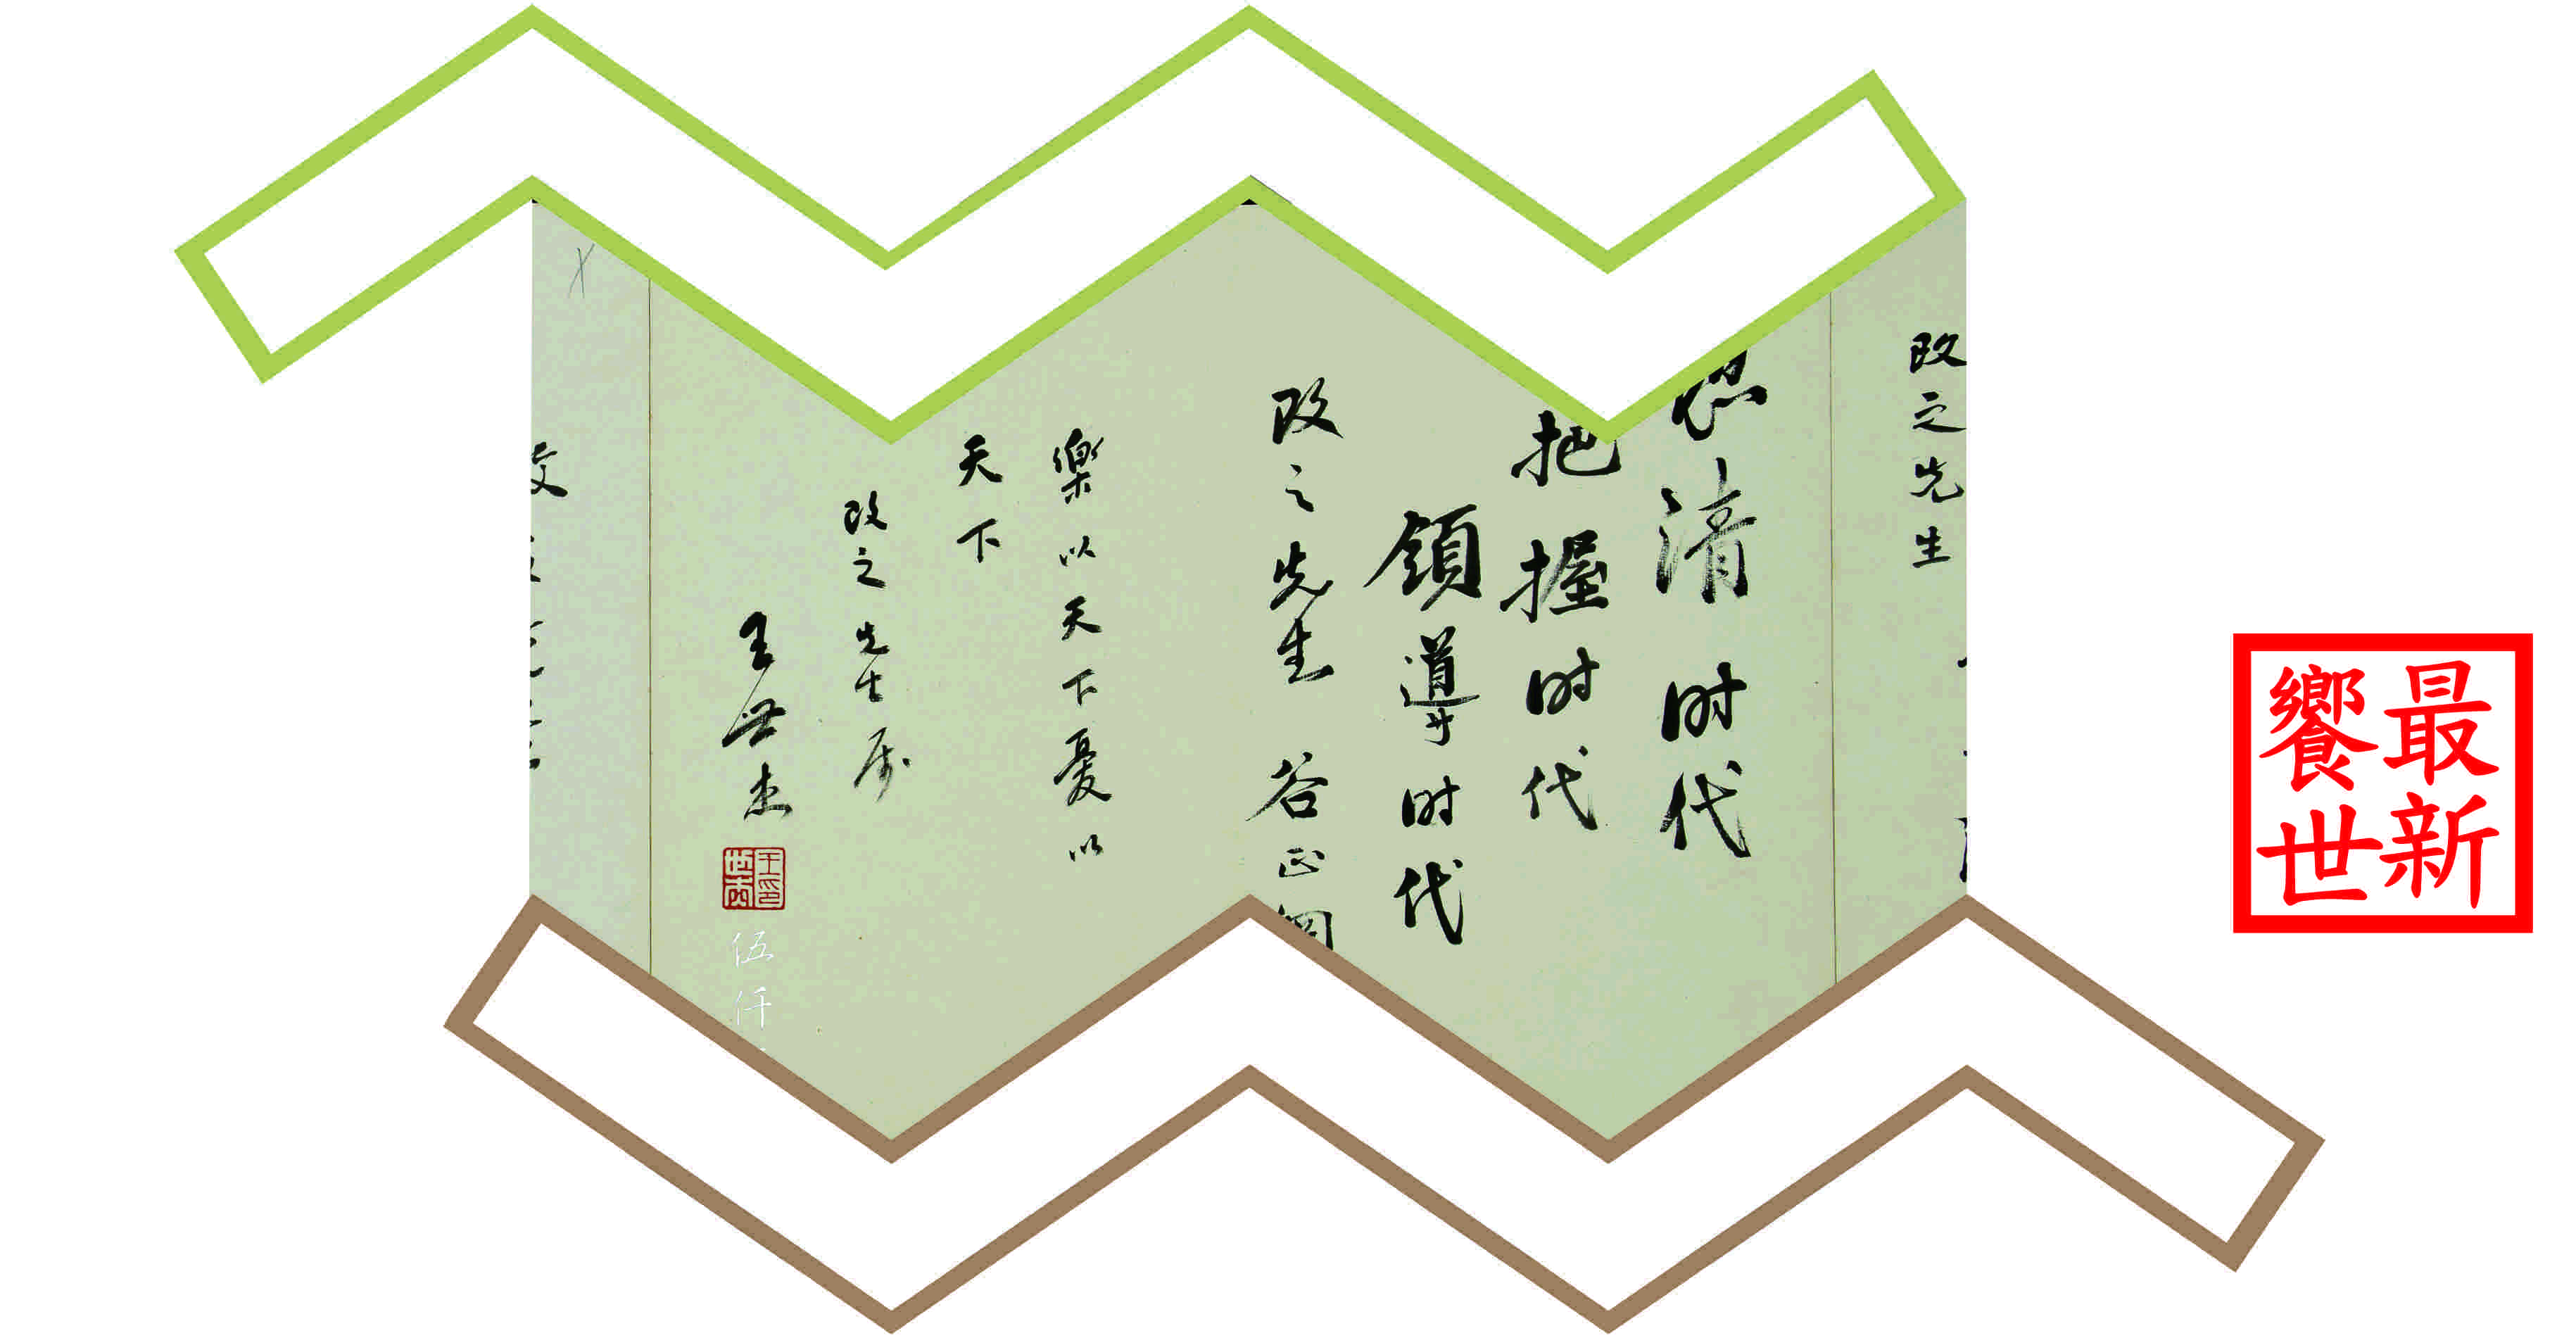 改之先生
清时代
把握时代
領導时代
改之先生 谷正綱
樂以天下憂以
天下
改之先生属
王世杰
王印世杰
伍仟
最新
饗世